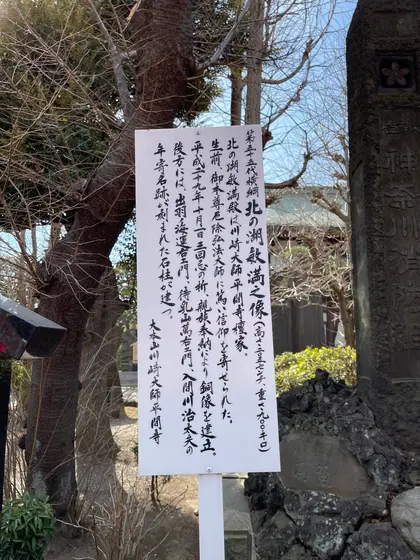 第五十五代横綱 北の湖敏満之像(高さ二三七センチ、重さ九〇〇キロ)
北の湖敏満殿は川崎大師平間寺檀家。
生前、御本尊厄除弘法大師に篤い信仰を寄せられた。
平成二十九年十月一日三回忌の祈、親族奉納により銅像を建立。
後方には、出羽ノ海運右エ門、待乳山萬右エ門、入間川治太夫の
年寄名跡が刻まれた石柱が建つ。
大本山川崎大師平間寺